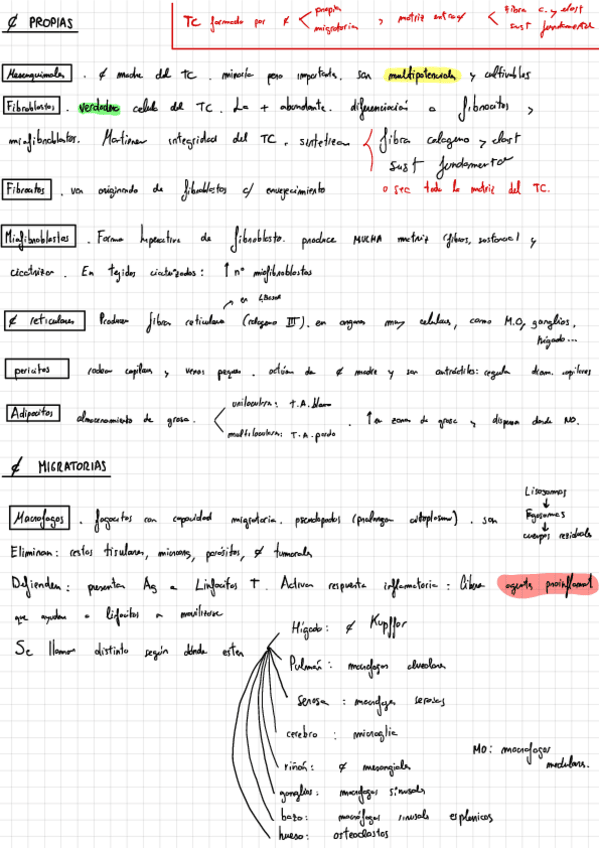 ¢ PROPIAS
TC formado por ¢ < propia / migratoria y matriz extra¢ < Fibra c. y elast / sust fundamental
Mesenquimales . ¢ madre del TC . minoria pero importante. son multipotenciales y cultivables
Fibroblastos . verdadera celula del TC. La + abundante. diferenciación a fibrocitos y
miofibroblastos. Mantienen integridad del TC. sintetizan { fibra colageno y elast
sust fundamental
o sea toda la matriz del TC.
Fibrocitos . van originando de fibroblastos c/ envejecimiento
Miofibroblastos . Forma hiperactiva de fibroblasto. produce MUCHA matriz (fibras, sustancia) y
cicatrizan . En tejidos cicatrizados: ↑ nº miofibroblastos
→ en L.Basal
¢ reticulares Producen fibra reticular (colageno III). en organos muy celulares, como M.O, ganglios,
higado...
pericitos rodean capilares y venas pequeñas. actúan de ¢ madre y son contráctiles: regula diam. capilares
Adipocitos almacenamiento de grasa. < unilocular: T.A. blanco
multilocular: T.A. pardo
. ↑ en zonas de grasa y dispersa donde NO.
¢ MIGRATORIAS
Macrofagos . fagocitos con capacidad migratoria. pseudopodos (prolongan citoplasma) . son
Lisosomas
↓
Fagosomas
↓
cuerpos residuales
Eliminan: restos tisulares, microorg, parásitos, ¢ tumorales
Defienden: presentan Ag a Linfocitos T. Activan respuesta inflamatoria: libera agentes proinflamat
que ayudan a linfocitos a movilizarse
Se llaman distinto según dónde esten
Hígado: ¢ Kupffor
Pulmón: macrofagos alveolares
serosa: macrofagos serosas
cerebro: microglia
riñón: ¢ mesangiales
MO: macrofagos
medulares.
ganglios: macrofagos sinusals
bazo: macrófagos sinusals esplenicos
hueso: osteoclastos